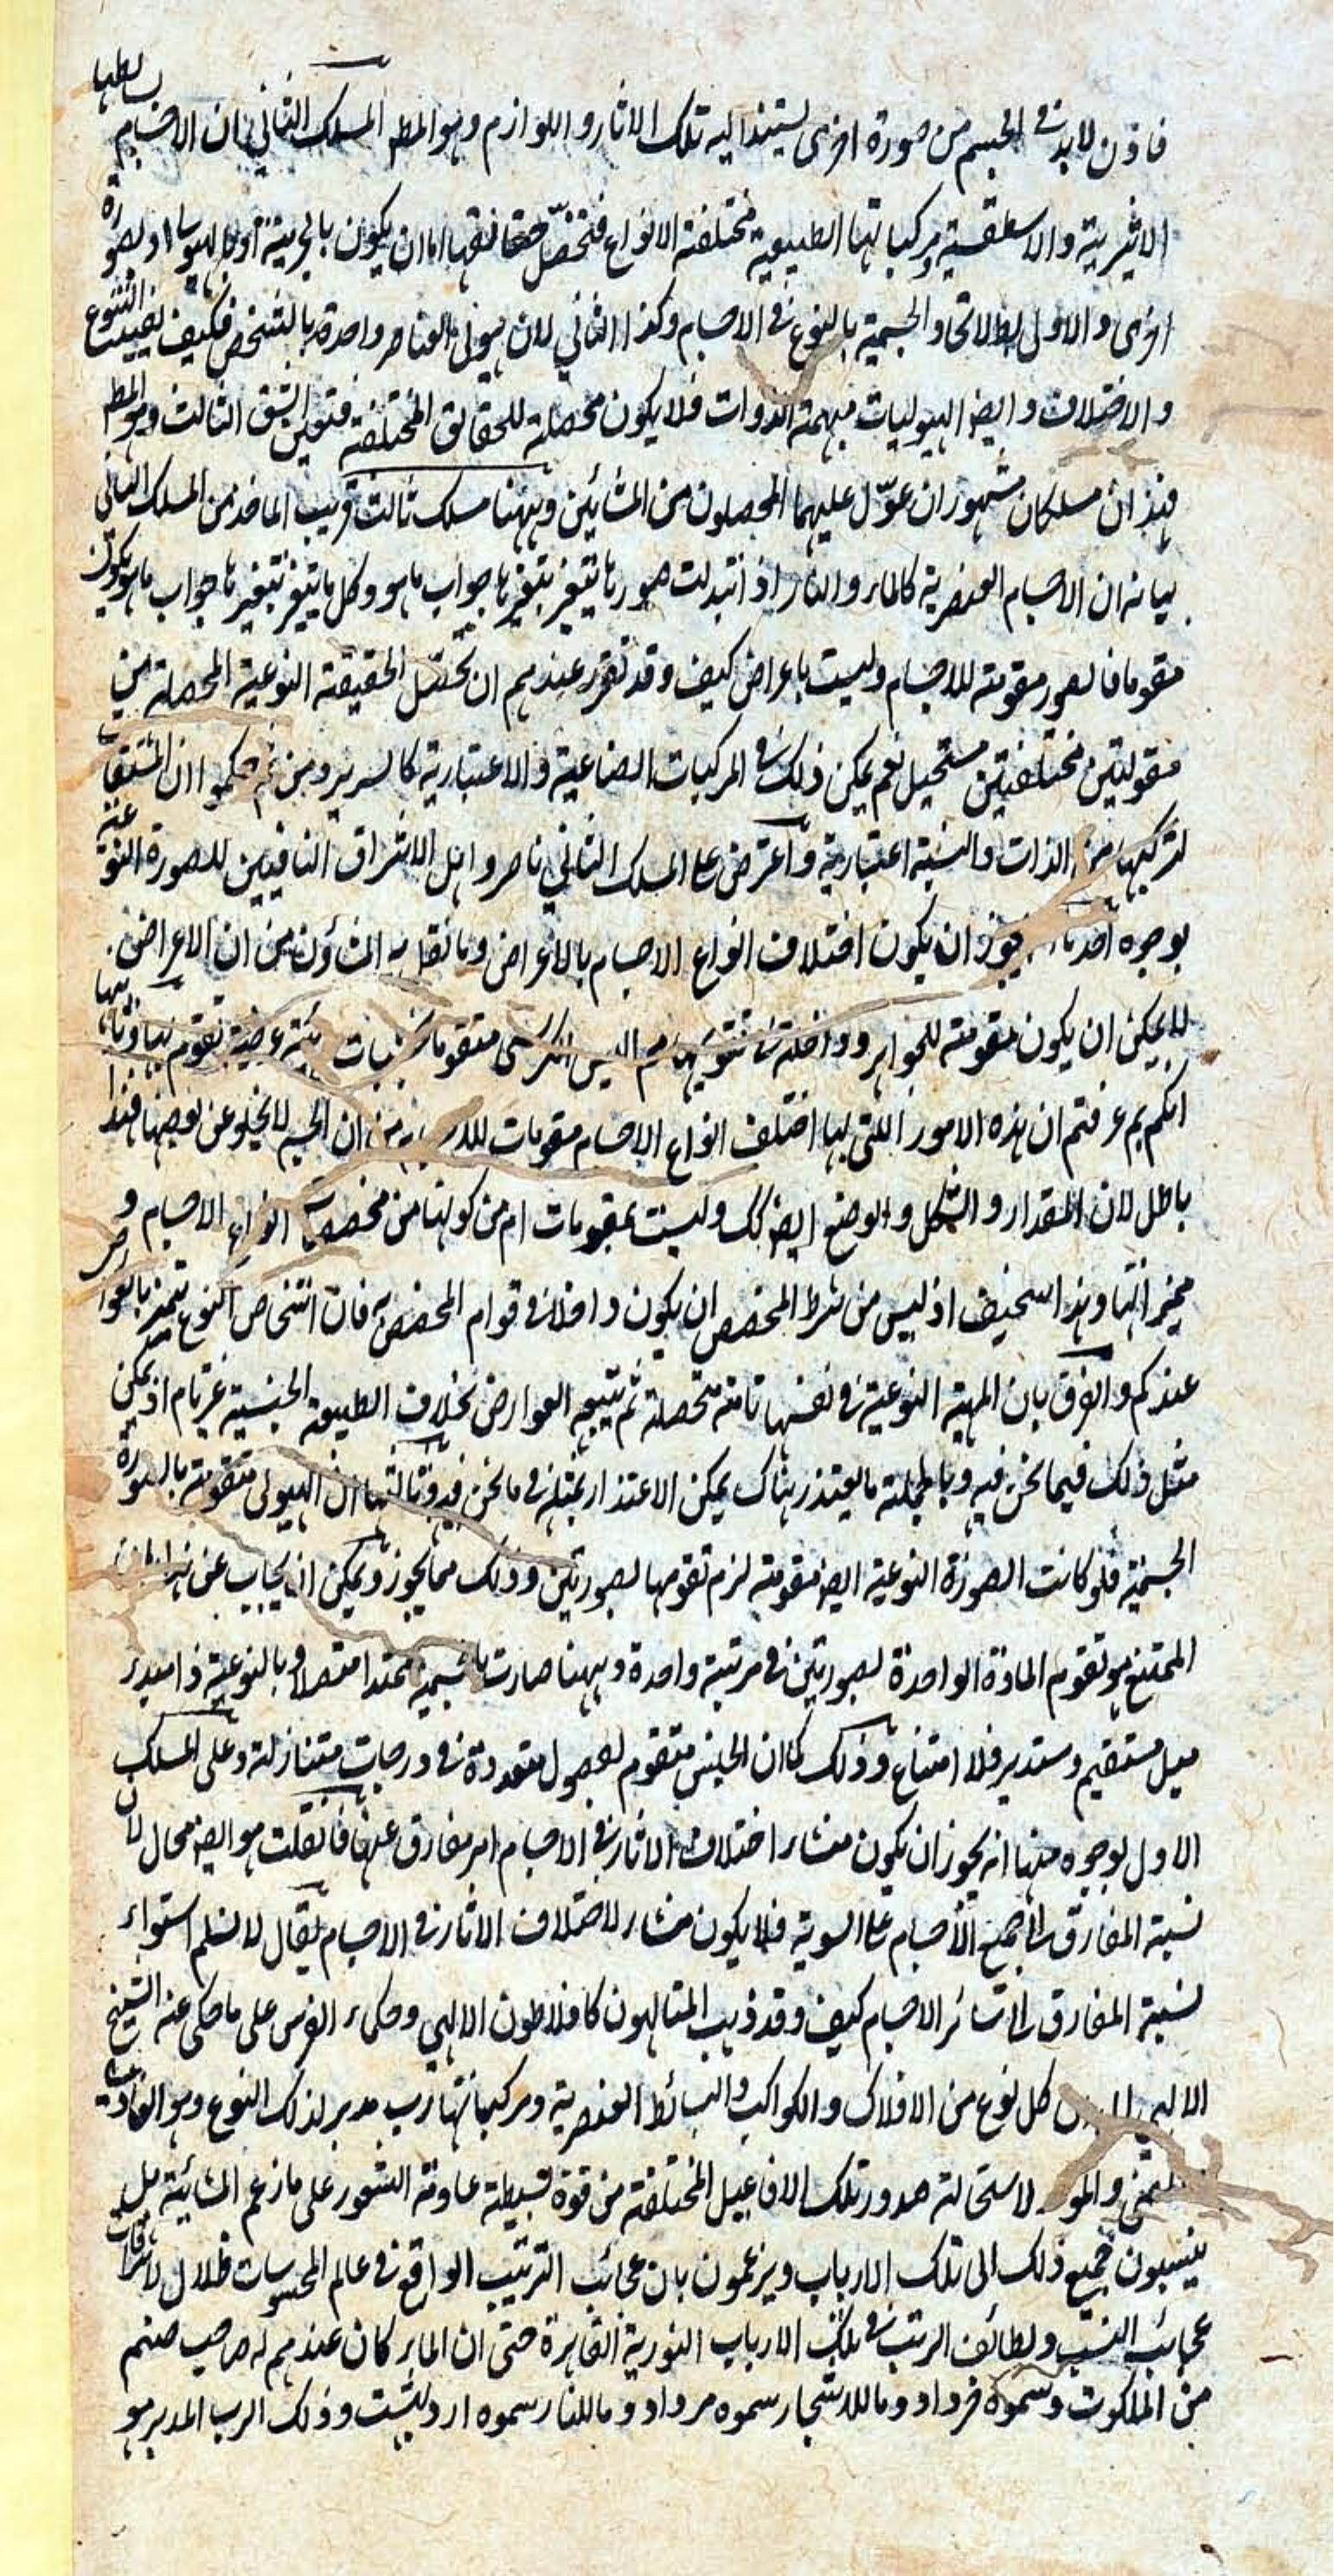 فاذن لابد في الجسم من صورة اخرى يستند اليه تلك الاثار واللوازم وهو المط المسلك الثاني ان الاجسام بسايطها
الاثيرية والاسطقسية ومركباتها الطبيعية مختلفة الانواع فتحصّل حقائقها اما ان يكون بالجرمية او بالهيولى او لصورة
اخرى والاول بط لاتحاد الجسمية بالنوع في الاجسام وكذا الثاني لان هيولى العناصر واحدة بالشخص فكيف يفيد التنوع
والاختلاف وايض الهيوليات مبهمة الذوات فلا يكون محصلة للحقائق المختلفة فتعين الشق الثالث وهو المط
فهذان مسلكان مشهوران عوّل عليهما المحصلون من المشائين وههنا مسلك ثالث قريب الماخذ من المسلك الثاني
بيانه ان الاجسام العنصرية كالماء والنار اذ اتبدلت صورها يتغير بتغيرها جواب ما هو وكل ما يتغير بتغيره جواب ما هو يكون
مقوما فالصور مقومة للاجسام وليست باعراض كيف وقد تقرر عندهم ان تحصّل الحقيقة النوعية المحصلة من
مقولتين مختلفتين مستحيل نعم يمكن ذلك في المركبات الصناعية والاعتبارية كالسرير ومن ثم حكموا ان المشتقات
لتركيبها من الذات والنسبة اعتبارية واعترض على المسلك الثاني ناصروا اهل الاشراق النافيين للصورة النوعية
بوجوه احدها يجوز ان يكون اختلاف انواع الاجسام بالاعراض وما تقلبه المشاؤن من ان الاعراض
لا يمكن ان يكون مقومة للجواهر وداخلة في تنوعها اليس الكرسي متقوما بخشبات هيئة عرضية تقوم بها وثانيها
انكم بم عرفتم ان هذه الامور اللتي لها اختلف انواع الاجسام مقومات من ان الجسم لا يخلو عن بعضها فهذا
باطل لان المقدار والشكل والوضع ايض كك وليست بمقومات ام من كونها من مخصصات انواع الاجسام و
مميزاتها وهذا سخيف اذ ليس من شرط المخصص ان يكون داخلا في قوام المخصص به فان اشخاص النوع تتميز بالعوارض
عندكم والفرق بان المهية النوعية في نفسها تامة متحصلة ثم يتبعه العوارض بخلاف الطبيعة الجنسية غير تام اذ يمكن
مثل ذلك فيما نحن فيه وبالجملة ما يعتذر هناك يمكن الاعتذار بمثله في ما نحن فيه وثالثها ان الهيولى متقومة بالصورة
الجسمية فلو كانت الصورة النوعية ايض مقومة لزم تقومها بصورتين وذلك مما يجوز ويمكن ان يجاب عن هذا بان
الممتنع هو تقوم المادة الواحدة بصورتين في مرتبة واحدة وههنا صارت بالجسمية ممتدا متصلا وبالنوعية ذا مبدء
ميل مستقيم ومستدير فلا امتناع وذلك كما ان الجنس متقوم بفصول متعددة في درجات متنازلة وعلى المسلك
الاول بوجوه منها انه يجوز ان يكون منشاء اختلاف الاثار في الاجسام امر مفارق عنها فان قلت هو ايض محال لان
نسبة المفارق الى جميع الاجسام على السوية فلا يكون منشاء لاختلاف الاثار في الاجسام يقال لا نسلم استواء
نسبة المفارق الى سائر الاجسام كيف وقد ذهب المتالهون كافلاطون الالهي وحكماء الفرس على ما حكى عنه الشيخ
الالهي كل نوع من الافلاك والكواكب والبسائط العنصرية ومركباتها رب مدبر لذلك النوع وهو الغاذية
والمو لاستحالة صدور تلك الافاعيل المختلفة من قوة بسيطة عادمة الشعور على ما زعم المشائية بل
ينسبون جميع ذلك الى تلك الارباب ويزعمون بان عجائب الترتيب الواقع في عالم المحسوسات ظلال لاشراقات
عجائب النسب ولطائف الرتب في تلك الارباب النورية القاهرة حتى ان الماء كان عندهم له صاحب صنم
من الملكوت وسموه خرداد وما للاشجار سموه مرداد وما للنار سموه ارديبشت وذلك الرب المدبر هو